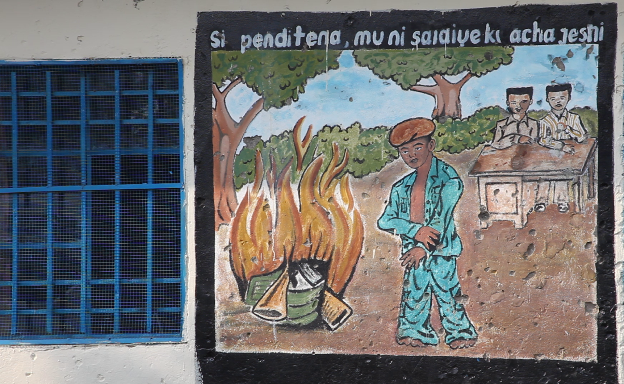 Si penditena, mu ni saidiye ki acha jeshi